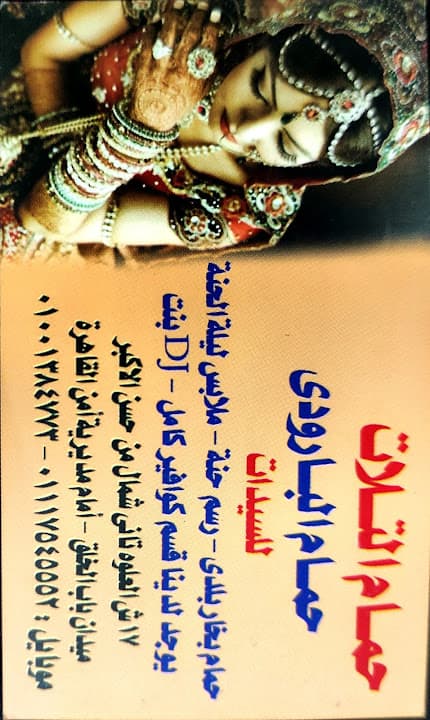 حمام التلات
حمام البارودى
للسيدات
حمام بخار بلدى - رسم حنة - ملابس ليلة الحنة
يوجد لدينا قسم كوافير كامل - DJ بنت
١٧ ش العلوه تانى شمال من حسن الاكبر
ميدان باب الخلق - أمام مديرية أمن القاهرة
موبايل : ٠١١١٧٥٤٥٥٥٢ - ٠١٠٠١٣٨٤٧٧٣